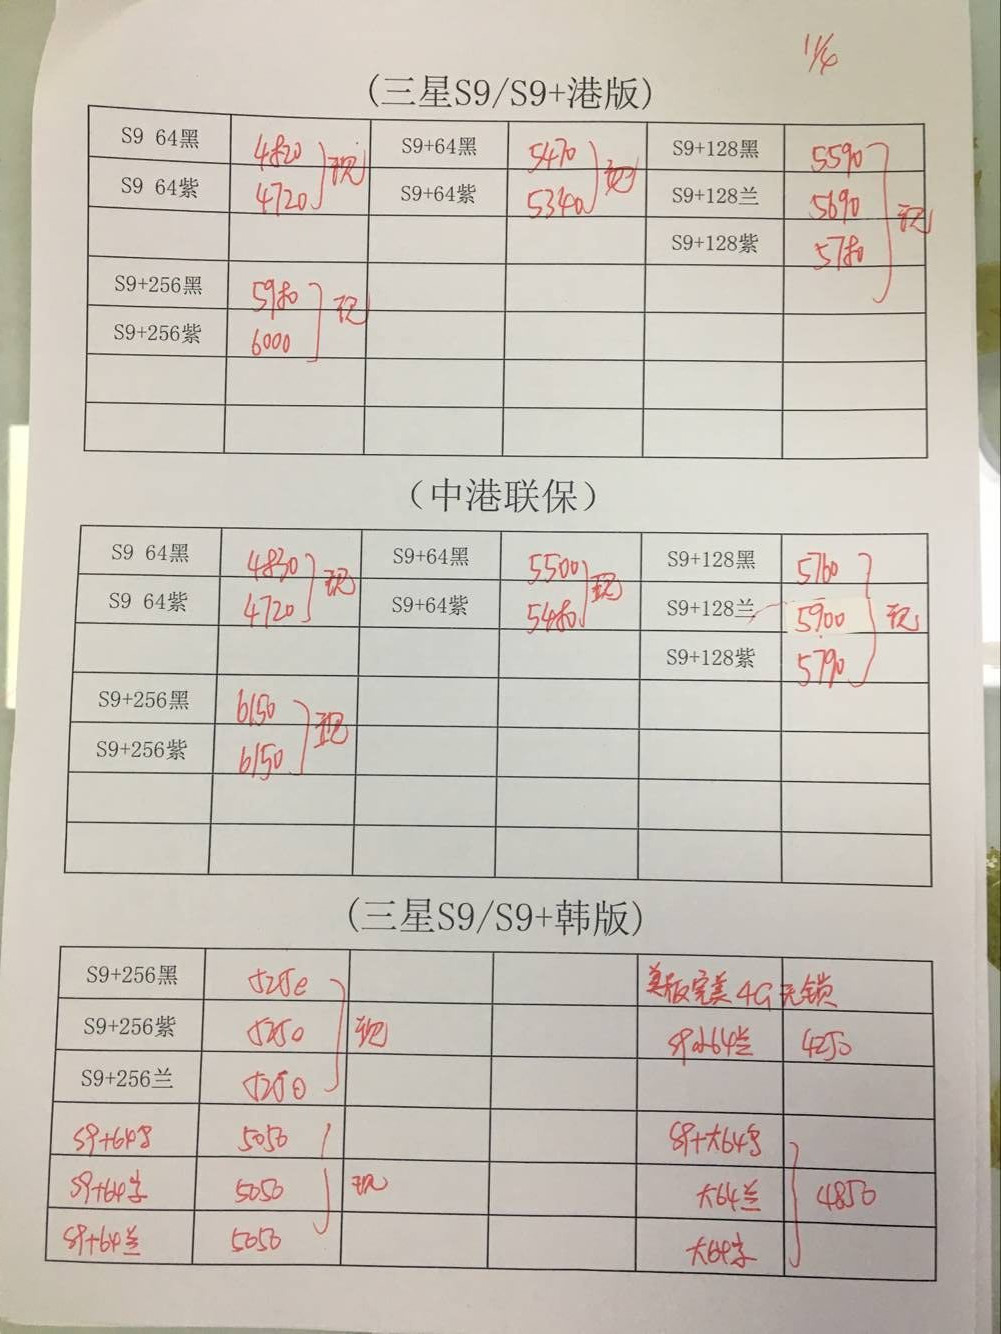 1/4
(三星S9/S9+港版)
S9 64黑 4820 S9+64黑 5470 S9+128黑 5590
S9 64紫 4720 现 S9+64紫 5340 现 S9+128兰 5690 现
S9+128紫 5780
S9+256黑 5980 现
S9+256紫 6000
(中港联保)
S9 64黑 4830 S9+64黑 5500 S9+128黑 5760
S9 64紫 4720 现 S9+64紫 5480 现 S9+128兰 5900 现
S9+128紫 5790
S9+256黑 6150 现
S9+256紫 6150
(三星S9/S9+韩版)
S9+256黑 5250 美版完美4G无锁
S9+256紫 5250 现 S9小64兰 4250
S9+256兰 5250
S9+64 5050 S9+大64
S9+64 5050 现 大64兰 4850
S9+64兰 5050 大64